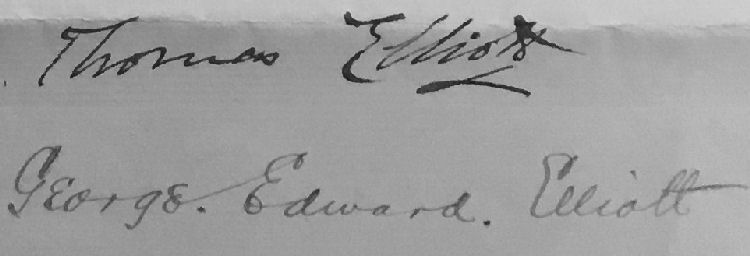 Thomas Elliott
George. Edward. Elliott